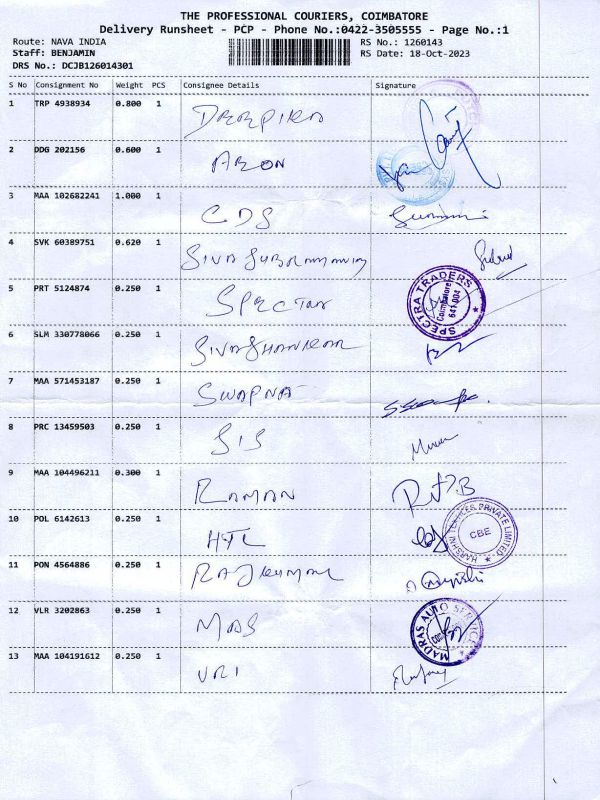 THE PROFESSIONAL COURIERS, COIMBATORE
Delivery Runsheet - PCP - Phone No.:0422-3505555 - Page No.:1
Route: NAVA INDIA RS No.: 1260143
Staff: BENJAMIN RS Date: 18-Oct-2023
DRS No.: DCJB126014301
S No Consignment No Weight PCS Consignee Details Signature
1 TRP 4938934 0.800 1 DEEPIKA
2 DDG 202156 0.600 1 ARON
3 MAA 102682241 1.000 1 CDS
4 SVK 60389751 0.620 1 SIVA SUBRAMANIY
5 PRT 5124874 0.250 1 SPECTRA
SPECTRA TRADERS Coimbatore 641 004
6 SLM 330778066 0.250 1 SIVASHANKAR
7 MAA 571453187 0.250 1 SWAPNA
8 PRC 13459503 0.250 1 SIS
9 MAA 104496211 0.300 1 RAMAN
10 POL 6142613 0.250 1 HTL
HARSHNI TEXTILES PRIVATE LIMITED CBE
11 PON 4564886 0.250 1 RAJKUMAR
12 VLR 3202863 0.250 1 MAS
MADRAS AUTO SERVICE
13 MAA 104191612 0.250 1 URI